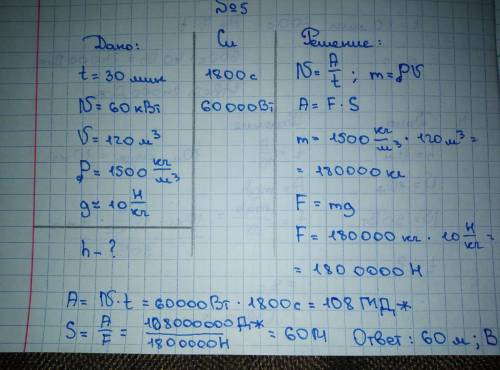 №5
Дано:
t = 30 мин
N = 60 кВт
V = 120 м³
ρ = 1500 кг/м³
g ≈ 10 Н/кг
h - ?
Си
1800 с
60000 Вт
Решение:
N = A/t ; m = ρV
A = F · S
m = 1500 кг/м³ · 120 м³ =
= 180000 кг
F = mg
F = 180000 кг · 10 Н/кг =
= 180 0000 Н
A = N · t = 60000 Вт · 1800 с = 108 МДж
S = A/F = 108000000 Дж/1800000 Н = 60 м Ответ: 60 м ; В